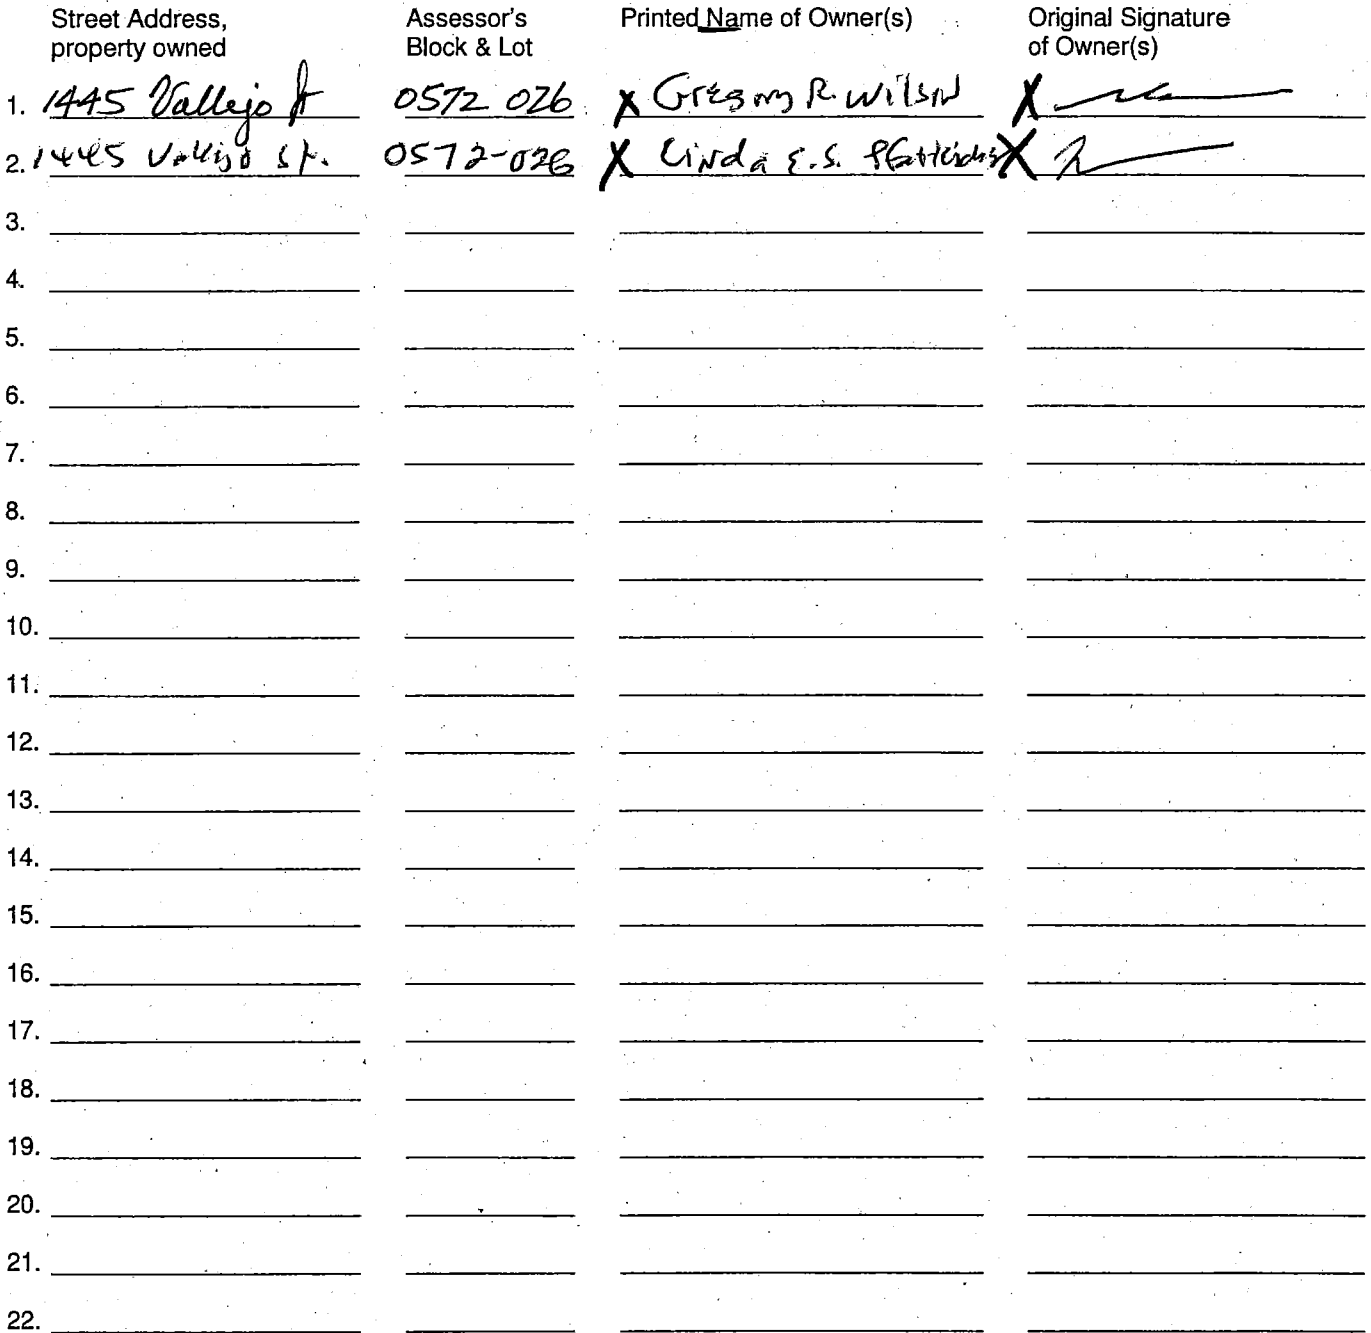 Street Address, property owned Assessor's Block & Lot Printed Name of Owner(s) Original Signature of Owner(s)
1. 1445 Vallejo St 0572 026 X Gregory R. Wilson X
2. 1445 Vallejo St. 0572-026 X Linda E.S. X
3.
4.
5.
6.
7.
8.
9.
10.
11.
12.
13.
14.
15.
16.
17.
18.
19.
20.
21.
22.